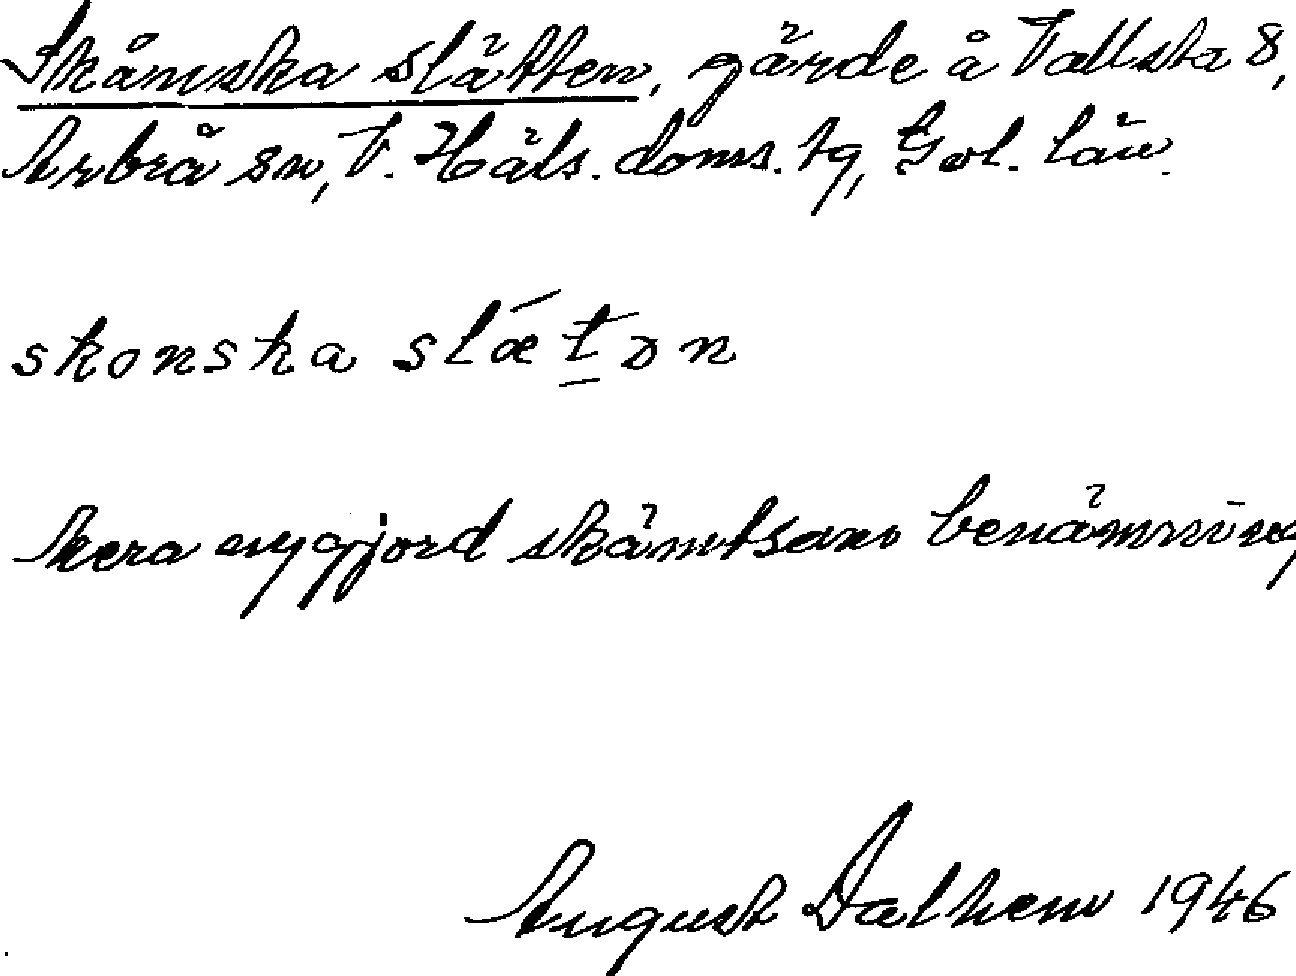 Skånska slätten, gärde å Vallsta 8,
Arbrå sn, V. Häls. doms. tg, Gvl. län.
skonska slǽt̲ən
Mera nygjord skämtsam benämning
August Dalhem 1946